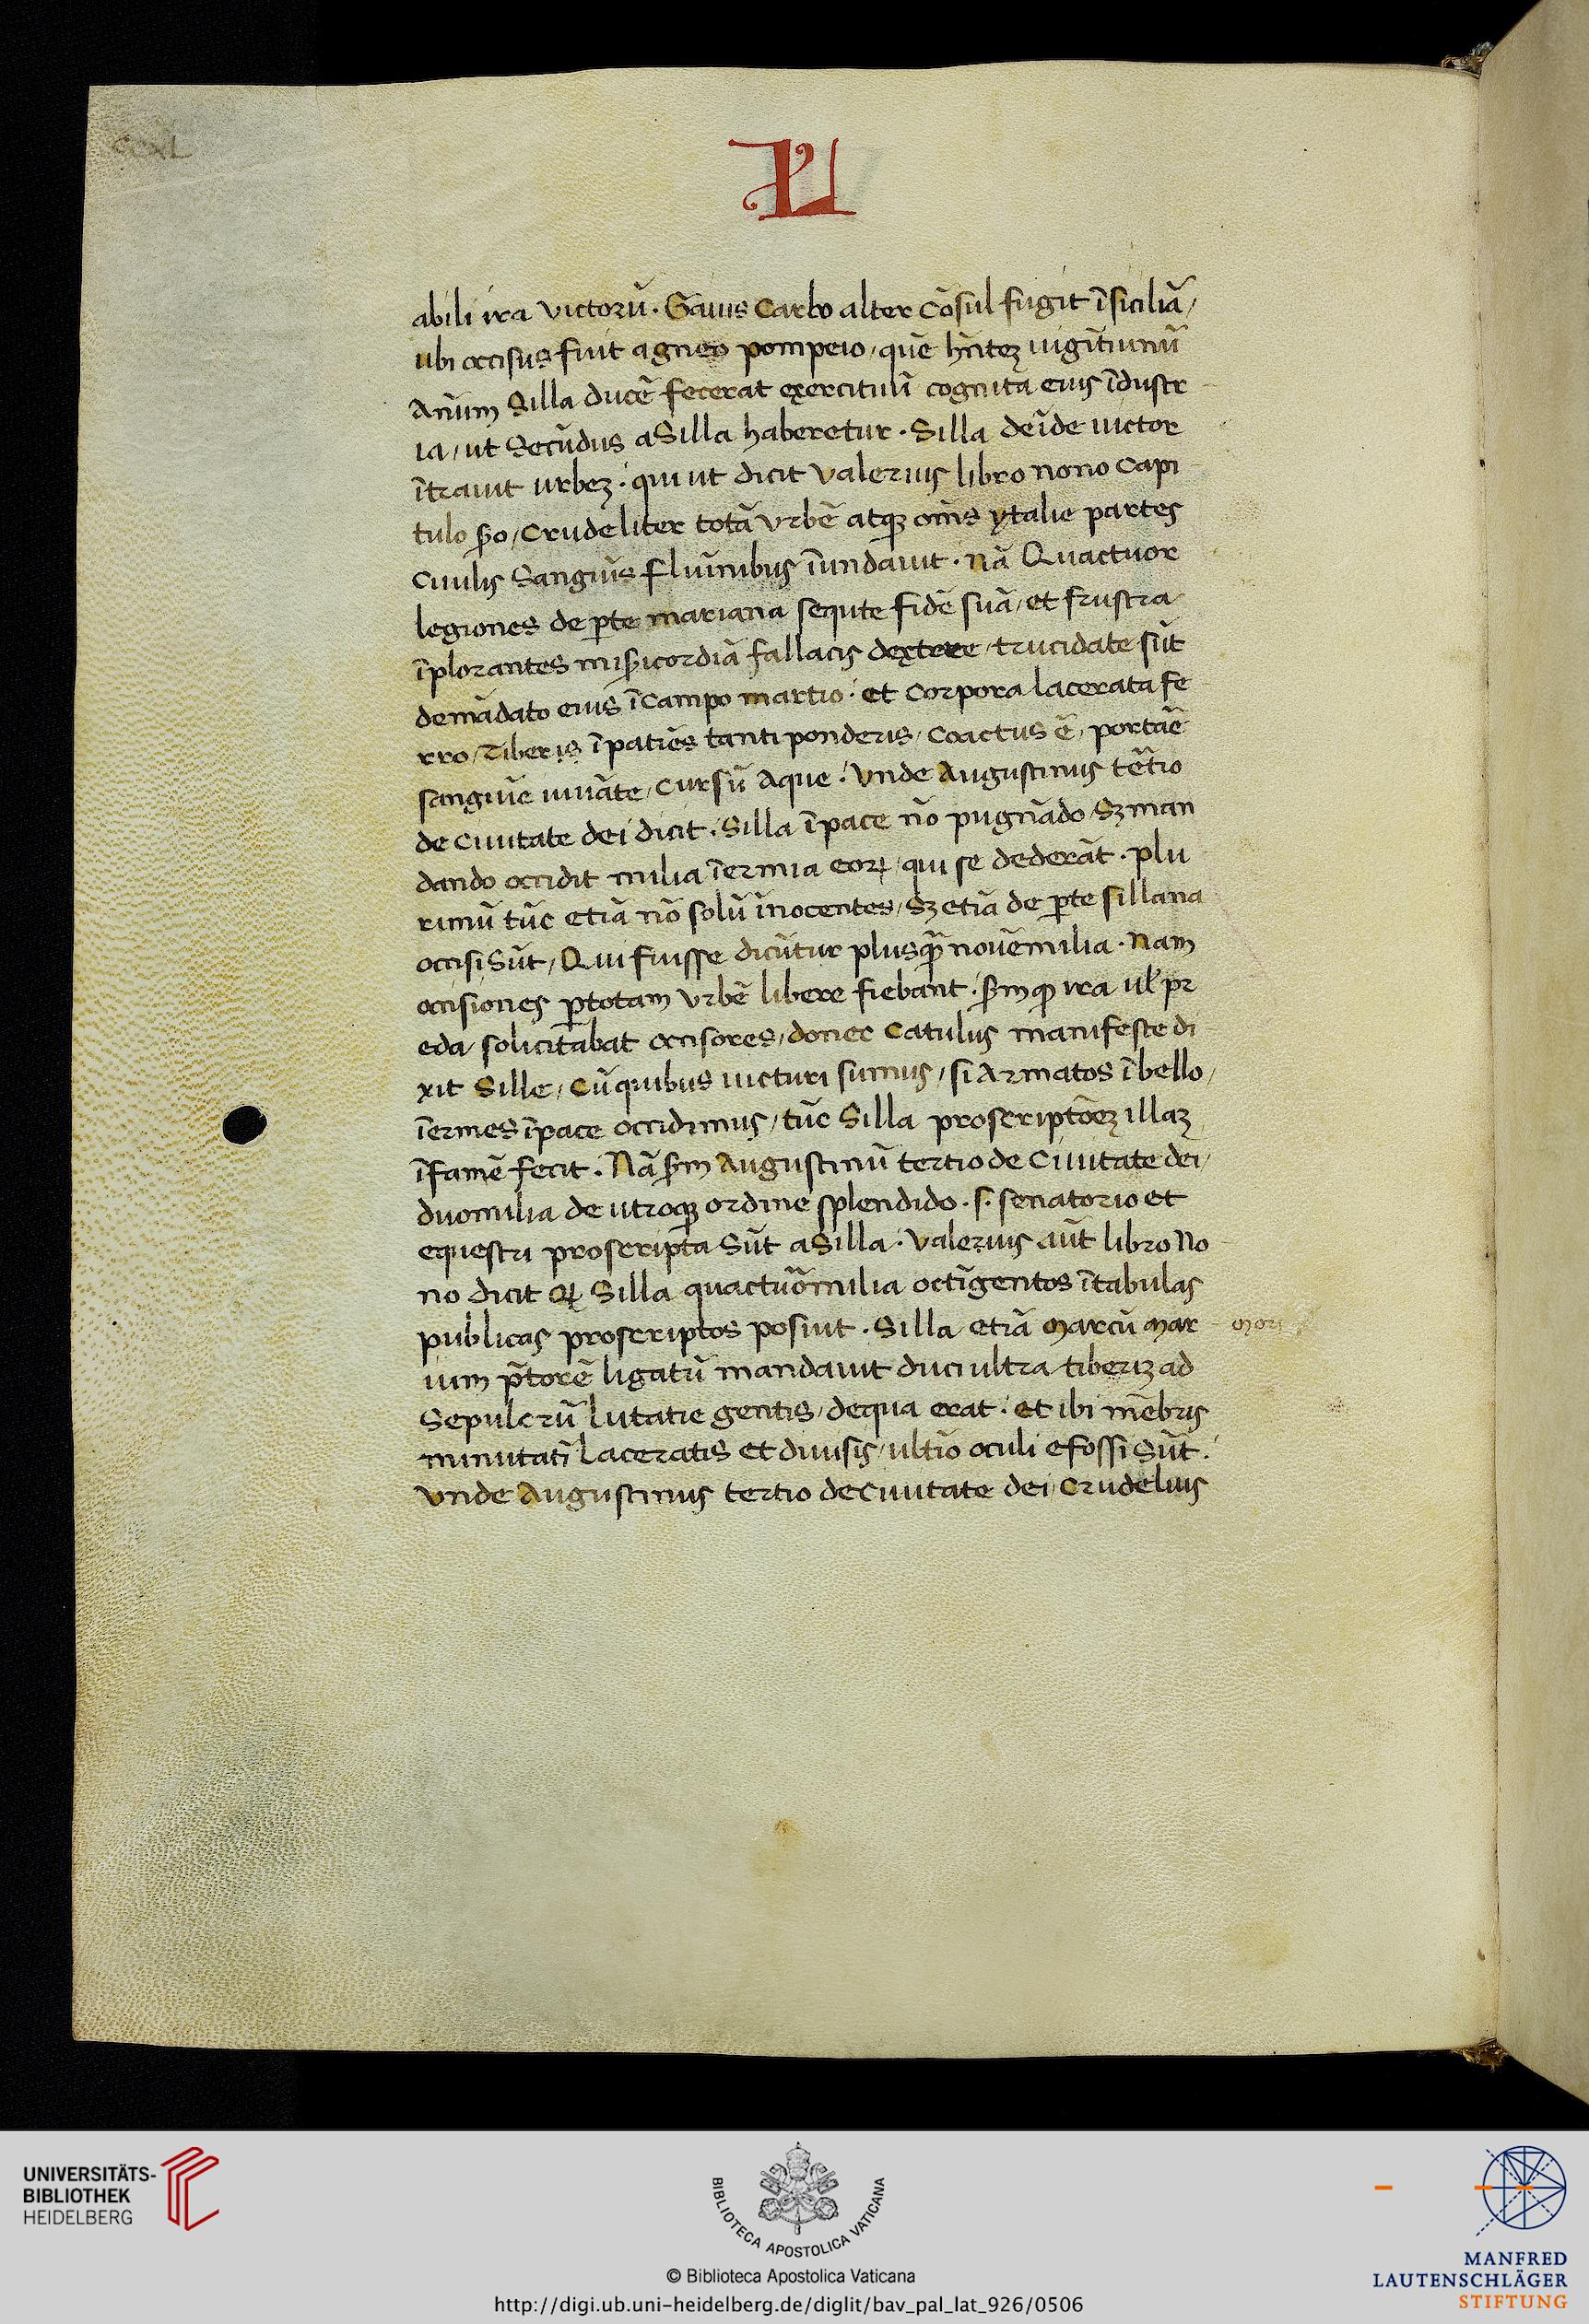 CCXL
L
abili ira victorũ. Gaius Carbo alter cõsul fugit ĩ siciliã/
ubi occisus fuit a gneo pompeio/ quẽ hñtez uigĩtiunũ
Anum Silla ducẽ fecerat exercituũ cognita eius ĩdustr
ia/ ut Secũdus a Silla haberetur. Silla deĩde uictor
ĩtrauit urbez. qui ut dicit Valerius libro nono Capi
tulo ẜo/ Crudeliter totã Vrbẽ atqꝫ om̃s ytalie partes
Ciuilis Sangiũs fluĩmibus ĩundauit. Nã Quactuor
legiones de ꝑte mariana sequte fidẽ suã/ et frustra
ĩplorantes miẜicordiã fallacis dextere/ trucidate sũt
de mãdato eius ĩ Campo martio. et Corpora lacerata fe
rro/ Tiberis ĩpatiẽs tanti ponderis/ Coactus ẽ/ portãe
sanguiẽ iuuãte/ Cursũ Aque. Vnde Augustinus tẽtio
de Ciuitate dei dicit. Silla ĩ pace nõ pugñado/ Sꝫ man
dando occidit milia ĩermia eoꝝ/ qui se dederãt. plu
rimũ tũc etiã nõ solũ ĩnocentes/ Sꝫ etiã de ꝑte sillana
occisi Sũt/ Qui fuisse dicũtur plusqꝫ̃ nouẽ milia. Nam
occisiones ꝑ totam Vrbẽ libere fiebant. ẜm ꝙ ira ul̃ pr
eda/ solicitabat occisores/ donec Catulus manifeste di
xit Sille/ Cũ quibus uicturi sumus/ si Armatos ĩ bello/
ĩermes ĩ pace occidimus/ tũc Silla proscriptõez illaz
ĩfamẽ fecit. Nã ẜm Augustinũ tertio de Ciuitate dei/
duomilia de utroqꝫ ordine splendido. s. senatorio et
equestri proscripta Sũt a Silla. Valerius aũt libro No
no dicit ꝙ Silla quactuõ milia octĩgentos ĩ tabulas
publicas proscriptos posiuit. Silla etiã Marcũ Mar
ium p̃torẽ ligatũ mandauit duci ultra tiberiz ad
Sepulcrũ Lutatie gentis/ de qua erat. et ibi mẽbris
minutatĩ laceratis et diuisis/ ultĩo oculi efossi Sũt.
Vnde Augustinus tertio de Ciuitate dei/ Crudelius
UNIVERSITÄTS-
BIBLIOTHEK
HEIDELBERG
BIBLIOTECA APOSTOLICA VATICANA
© Biblioteca Apostolica Vaticana
http://digi.ub.uni-heidelberg.de/diglit/bav_pal_lat_926/0506
MANFRED
LAUTENSCHLÄGER
STIFTUNG